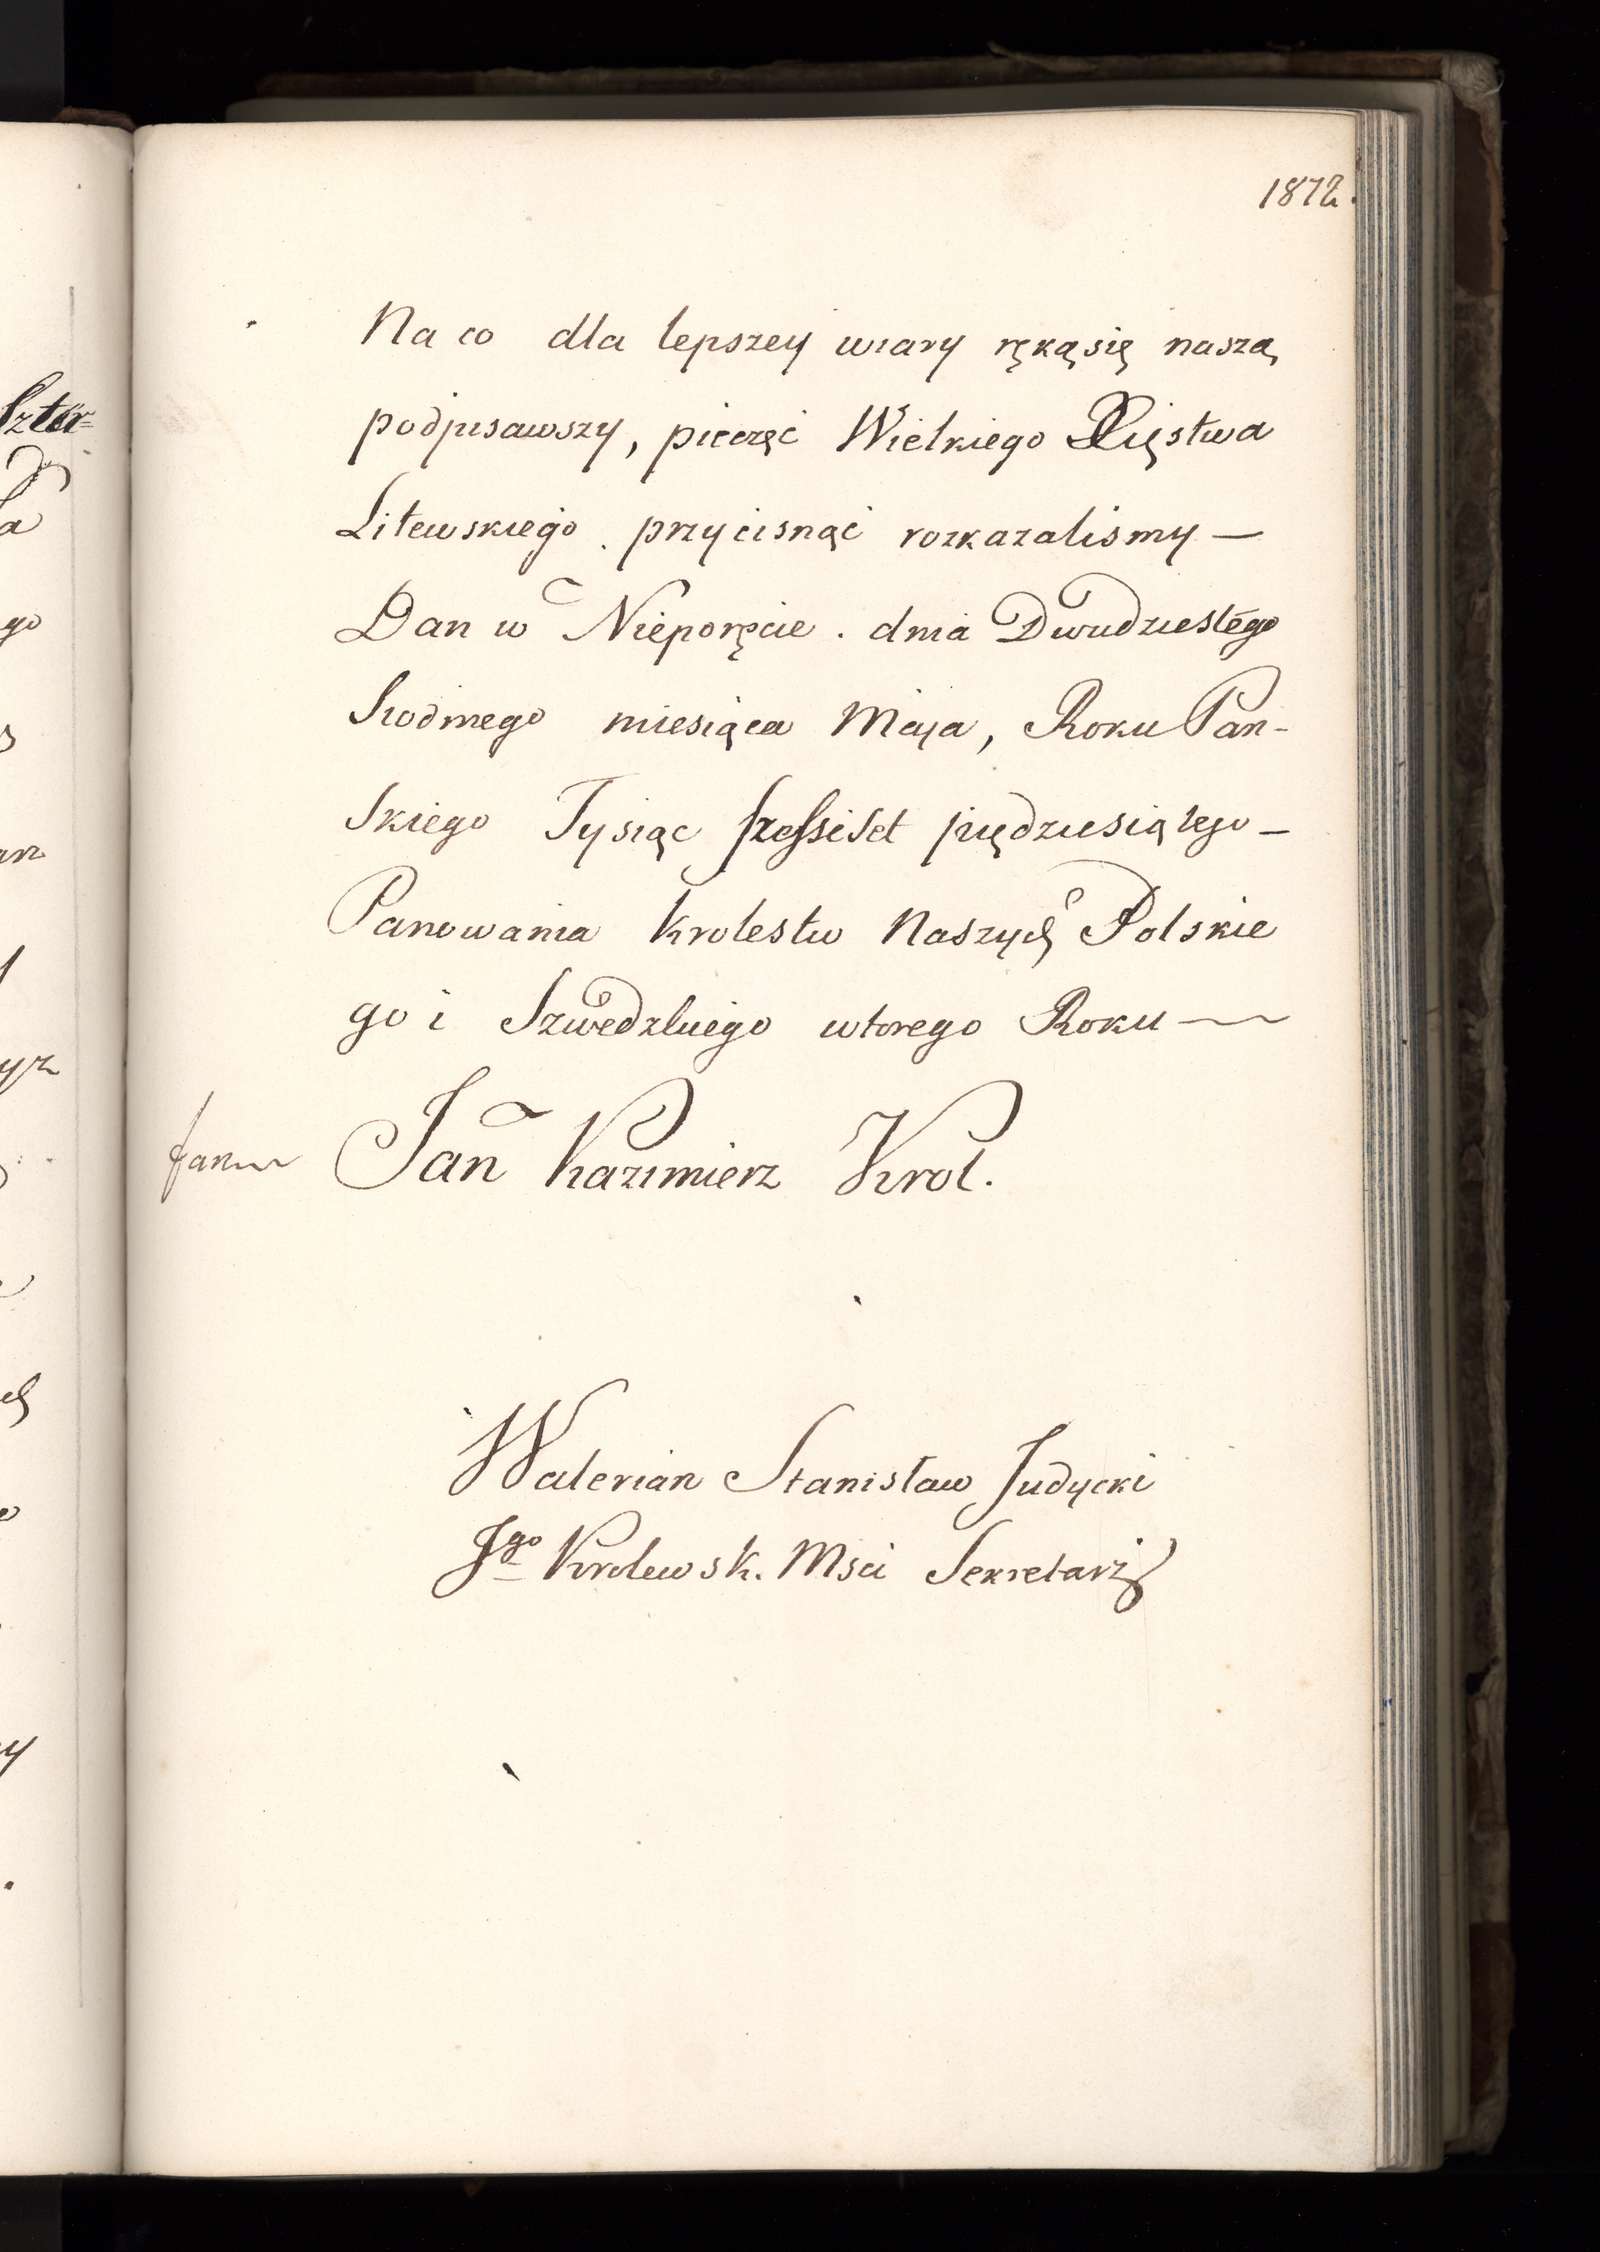 1872.
Na co dla lepszey wiary ręką się naszą
podpisawszy, pieczęć Wielkiego Xięstwa
Litewskiego. przycisnąć rozkazalismy —
Dan w Nieporęcie. dnia Dwudziestego
Siodmego miesiąca Maja, Roku Pan-
skiego Tysiąc szessiset piędziesiątego —
Panowania Krolestw Naszych Polskie
go i Szwedzkiego wtorego Roku —
Jan Kazimierz Krol.
Walerian Stanisław Judycki
Jgo Krolewsk. Msci Sekretarz